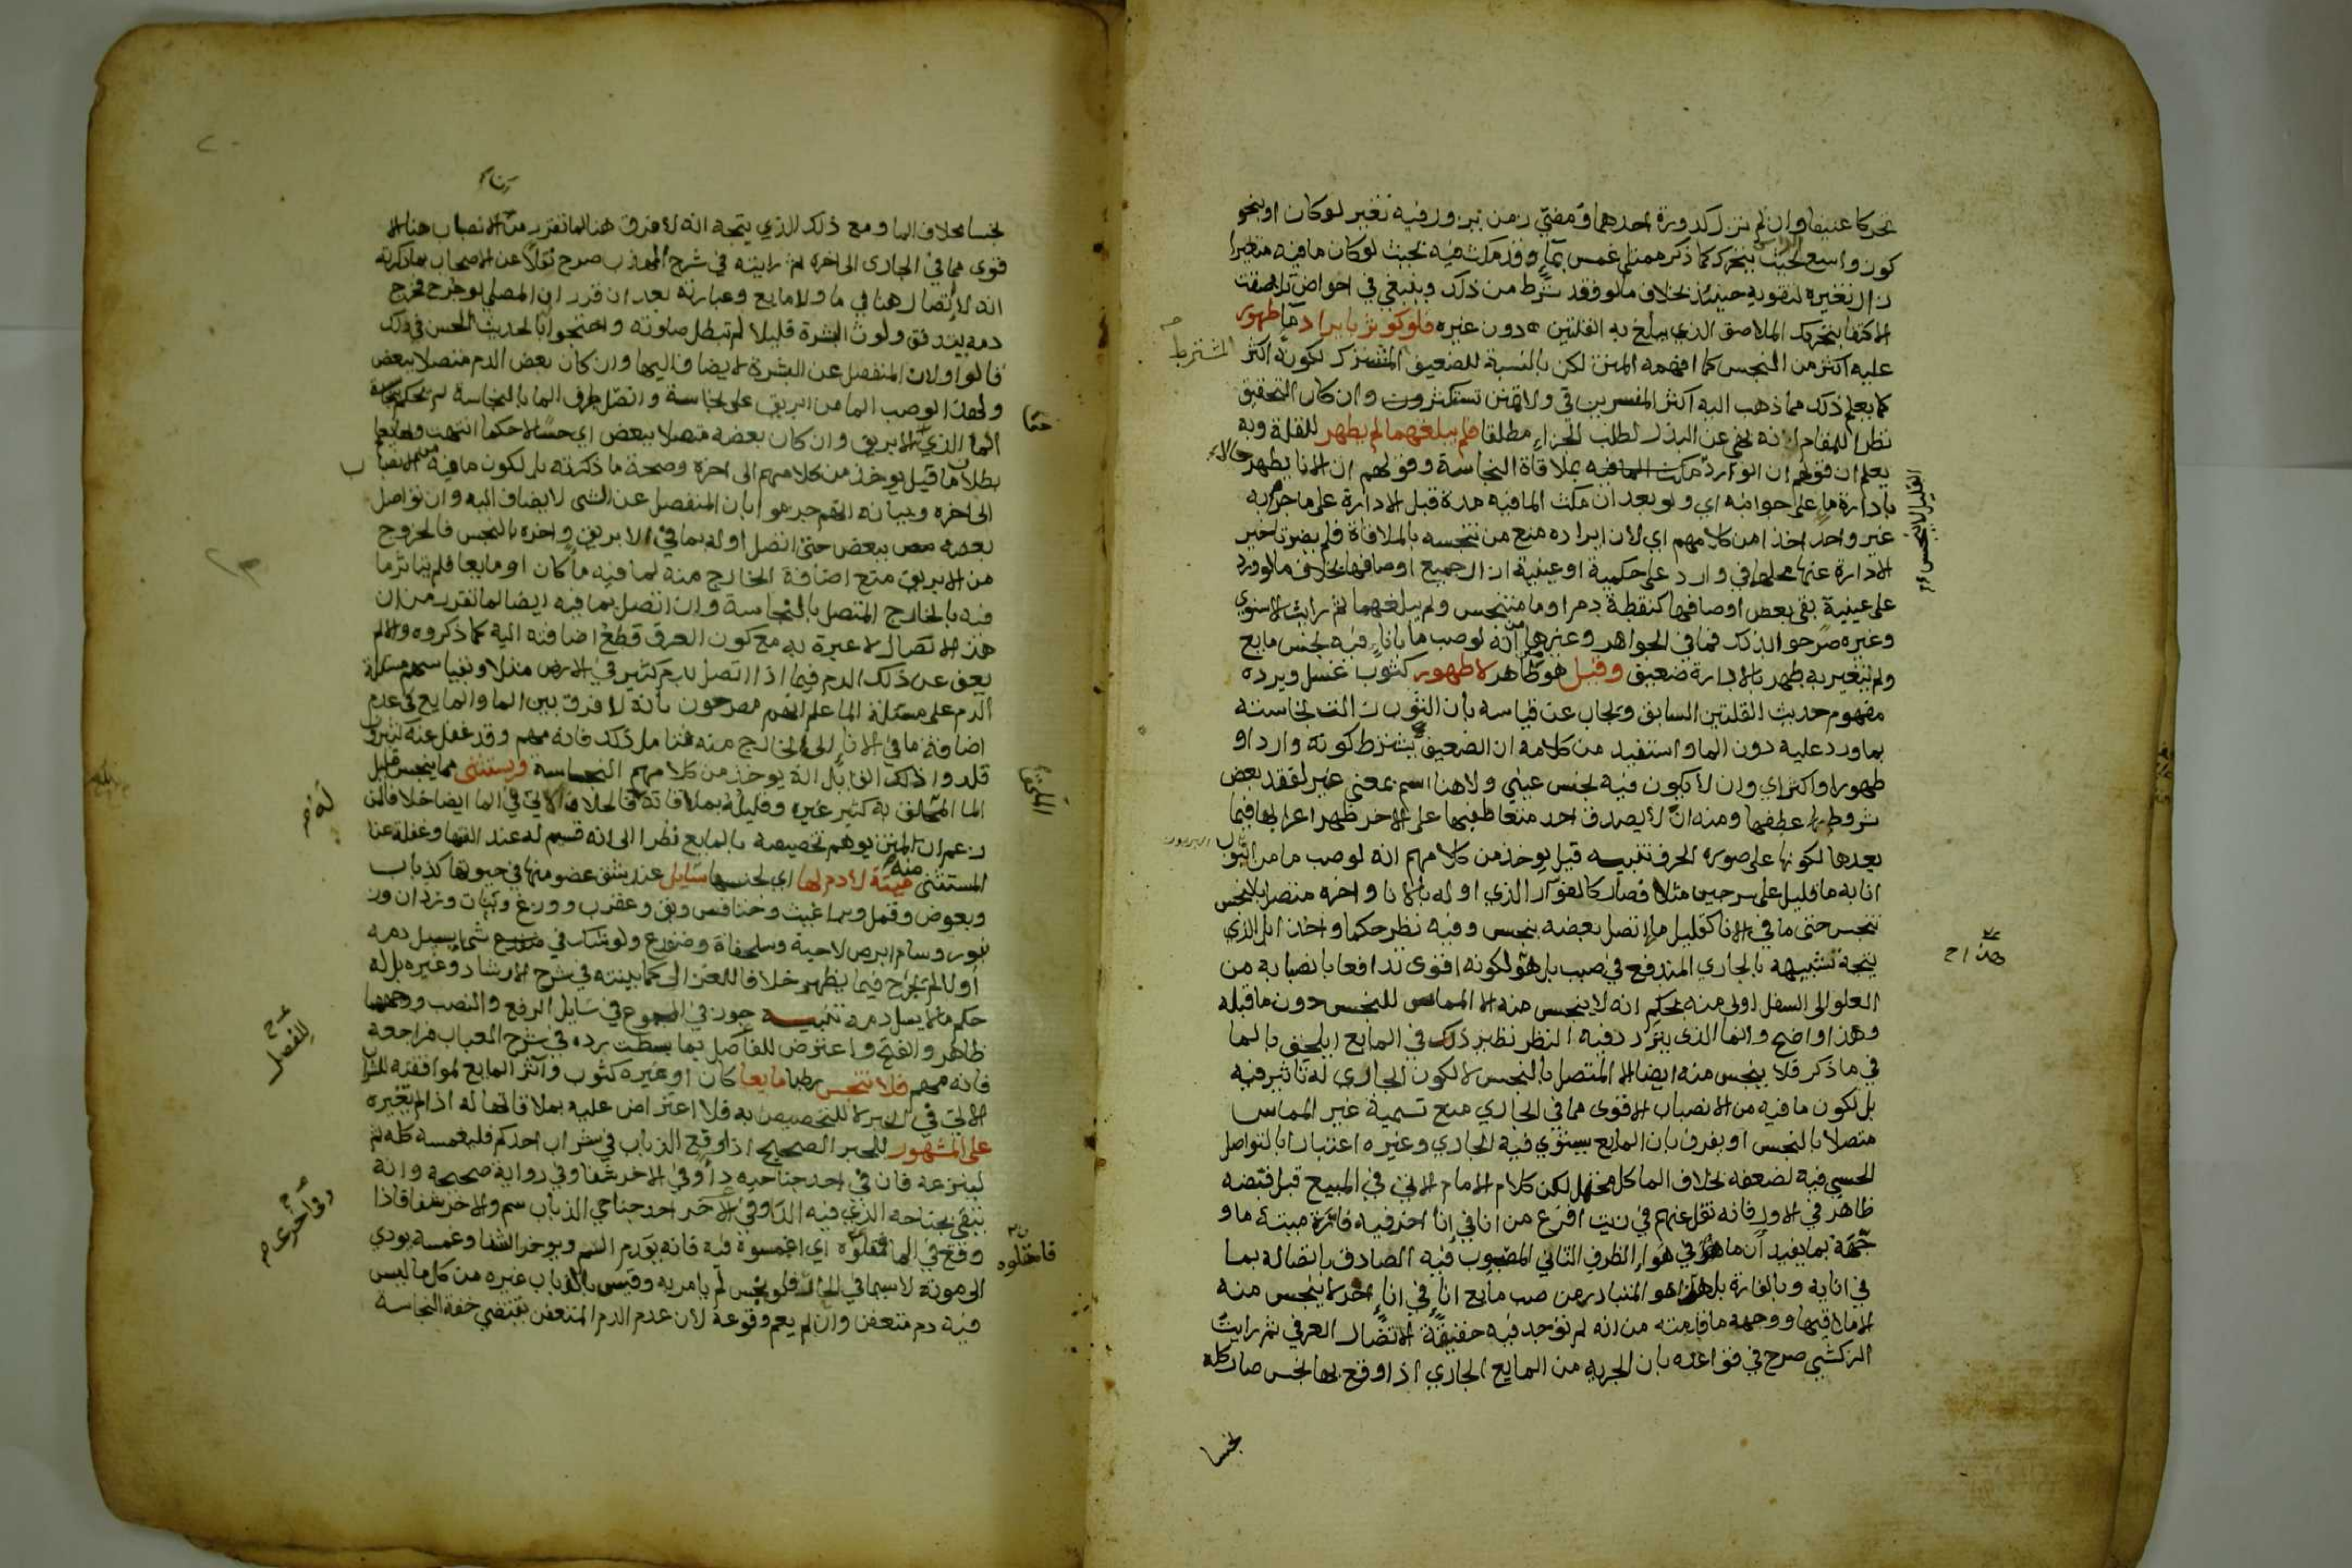 تحركا عنيفا وان لم تزل كدورة احدهما ومضي زمن يزول فيه تغير لو كان او بنحو
كوز واسع الراس بحيث يتحرك كما ذكر ممتلي غمس بماء وقد مكث فيه بحيث لو كان ما فيه متغيرا
زال تغيره لتقويه حينئذ بخلاف ما لو فقد شرط من ذلك وينبغي في احواض تلاصقت
الاكتفا بتحرك الملاصق الذي يبلغ به القلتين دون غيره فلو كوثر بايراد ما طهور
عليه اكثر من النجس كما افهمه المتن لكن بالنسبة للضعيف المشترط لكونه اكثر
كما يعلم ذلك مما ذهب اليه اكثر المفسرين في ولا تمنن تستكثر وان كان التحقيق
نظرا للمقام انه نهي عن البذل لطلب الجزاء مطلقا فلم يبلغهما لم يطهر للقلة وبه
يعلم ان قولهم ان الوارد بملاقاة النجاسة وقولهم ان الانا يطهر حالا
بادارة ما على جوانبه اي ولو بعد ان مكث الما فيه مدة قبل الادارة على ما جزم به
غير واحد اخذا من كلامهم اي لان ايراده منع من تنجسه بالملاقاة فلم يضر تاخير
الادارة عنها محلهما في وارد على حكمية او عينية ازال جميع اوصافها بخلاف ما لو ورد
على عينية بقي بعض اوصافها كنقطة دم او ما متنجس ولم يبلغهما ثم رايت الاسنوي
وغيره صرحوا بذلك فما في الجواهر وغيرها من انه لو صب ما باناء فيه نجس مايع
ولم يتغير به يطهر بالادارة ضعيف وقيل هو طاهر لا طهور كثوب غسل ويرده
مفهوم حديث القلتين السابق ويجاب عن قياسه بان الثوب زالت نجاسته
بما ورد عليه دون الما واستفيد من كلامه ان الضعيف يشترط كونه واردا و
طهورا واكثر اي وان لا يكون فيه نجس عيني ولا هنا اسم بمعنى غير لفقد بعض
شروط عطفها ومنه ان لا يصدق احد متعاطفيها على الاخر ظهر اعرابها فيما
بعدها لكونها على صورة الحرف تنبيه قيل يوخذ من كلامهم انه لو صب ما من
انا به ما قليل على سرجين مثلا فصار كالفوار الذي اوله بالانا واخره متصل بالنجس
تنجس حتى ما في الانا كقليل ما اتصل بعضه بنجس وفيه نظر حكما واخذا بل الذي
يتجه تشبيهه بالجاري المندفع في صبب بل هو لكونه اقوى تدافعا بانصبابه من
العلو الى السفل اولى منه بحكم انه لا ينجس منه الا المماس للنجس دون ما قبله
وهذا واضح وانما الذي يتردد فيه النظر نظير ذلك في المايع ايلحق بالما
في ما ذكر فلا ينجس منه ايضا الا المتصل بالنجس لا لكون الجاري له تاثير فيه
بل لكون ما فيه من الانصباب الاقوى مما في الجاري منع تسمية غير المماس
متصلا بالنجس او يفرق بان المايع يستوي فيه الجاري وغيره اعتبارا بالتواصل
الحسي فيه لضعفه بخلاف الما كل محتمل لكن كلام الامام الاتي في المبيع قبل قبضه
ظاهر في الاول فانه نقل عنهم في زيت افرغ من انا في انا اخر فيه فارة ميتة ما و
جهه بما يفيد ان ما هو في هواء الظرف الثاني المصبوب فيه الصادق باتصاله بما
في انايه وبالفارة بل هذا هو المتبادر من صب مايع اناء في اناء اخر لا ينجس منه
الا ما لاقيها ووجهه ما قدمته من انه لم توجد فيه حقيقة الاتصال العرفي ثم رايت
الزركشي صرح في قواعده بان الجرية من المايع الجاري اذا وقع بها نجس صار كله
نجسا
المشترط
القليل لا ينجس
نجسا بخلاف الما ومع ذلك الذي يتجه انه لا فرق هنا لما تقرر من ان الانصباب هنا
قوى مما في الجاري الى اخره ثم رايته في شرح المهذب صرح نقلا عن الاصحاب بما ذكرته
انه لا اتصال هنا في ما ولا مايع وعبارته بعد ان قرر ان المصلي لو جرح فخرج
دمه يتدفق ولوث البشرة قليلا لم تبطل صلوته واحتجوا بالحديث الحسن في ذلك
قالوا ولان المنفصل عن البشرة لا يضاف اليها وان كان بعض الدم متصلا ببعض
ولهذا لو صب الما من ابريق على نجاسة واتصل طرف الما بالنجاسة لم يحكم بنجاسة
الما الذي في الابريق وان كان بعضه متصلا ببعض اي حسا لا حكما انتهت وبها يعلم
بطلان ما قيل يوخذ من كلامهم الى اخره وصحة ما ذكرته بل لكون ما فيه من الانصباب
الى اخره وبيانه انهم جزموا بان المنفصل عن الشي لا يضاف اليه وان تواصل
بعضه ببعض حتى اتصل اوله بما في الابريق واخره بالنجس فالخروج
من الابريق منع اضافة الخارج منه لما فيه ما كان او مايعا فلم يتاثر ما
فيه بالخارج المتصل بالنجاسة وان اتصل بما فيه ايضا لما تقرر من ان
هذا الاتصال لا عبرة به مع كون العرف قطع اضافته اليه كما ذكروه والا لم
يعف عن ذلك الدم فيما اذا اتصل بدم كثير في الارض مثلا وبقياسهم مسئلة
الدم على مسئلة الما علم انهم مصرحون بانه لا فرق بين الما والمايع في عدم
اضافة ما في الانا الى الخارج منه فتامل ذلك فانه مهم وقد غفل عنه كثيرون
قلدوا ذلك القايل انه يوخذ من كلامهم النجاسة ويستثنى مما ينجس قليل
الما الملحق به كثير غيره وقليله بملاقاته فالخلاف الاتي في الما ايضا خلافا لمن
زعم ان المتن يوهم تخصيصه بالمايع نظرا الى انه قسيم له عند الفقها وغفلة عنا
المستثنى منه ميتة لا دم لها اي لجنسها سايل عند شق عضو منها في حيوتها كذباب
وبعوض وقمل وبراغيث وخنافس وبق وعقرب ووزغ وبنات وردان وز
نبور وسام ابرص لا حية وسلحفاة وضفدع ولو شك في شي ايسيل دمه
او لا لم يجرح فيما يظهر خلافا للغزالي كما بينته في شرح الارشاد وغيره بل له
حكم ما لا يسيل دمه تنبيه جوز في المجموع في سايل الرفع والنصب وهما
ظاهر والفتح واعترض للفاصل بما بسطت رده في شرح العباب فراجعه
فانه مهم فلا تنجس رطبا مايعا كان او غيره كثوب وآثر المايع لموافقته للشراب
الاتي في الخبر لا للتخصيص به فلا اعتراض عليه بملاقاتها له اذا لم تغيره
على المشهور للخبر الصحيح اذا وقع الذباب في شراب احدكم فليغمسه كله ثم
لينزعه فان في احد جناحيه داء وفي الاخر شفا وفي رواية صحيحة وانه
يتقي بجناحه الذي فيه الدا وفي اخرى احد جناحي الذباب سم والاخر شفا فاذا
وقع في الما فامقلوه اي اغمسوه فيه فانه يقدم السم ويوخر الشفا وغمسه يودي
الى موته لا سيما في الحار فلو نجس لم يامر به وقيس بالذباب غيره من كل ما ليس
فيه دم متعفن وان لم يعم وقوعه لان عدم الدم المتعفن يقتضي خفة النجاسة
حتما
الملحق
للفصل
وفي اخرى
فامقلوه